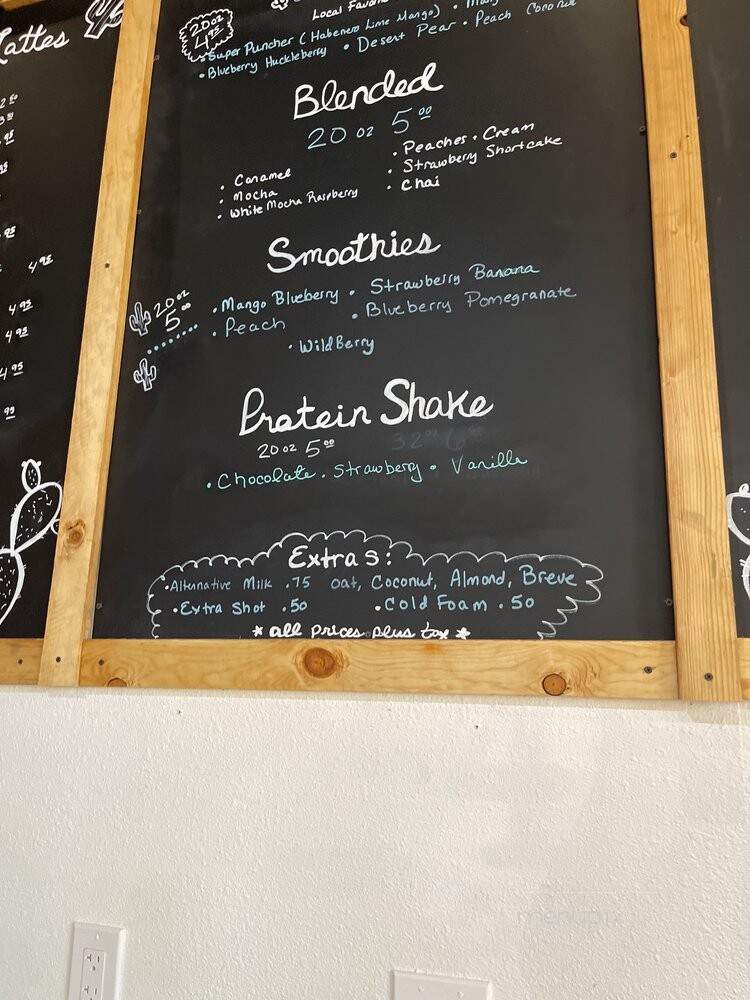 Lattes
4.95
4.95
4.95
4.95
20 oz
4.95
Local Favori
• Super Puncher (Habenero Lime Mango) •
• Blueberry Huckleberry • Desert Pear • Peach Coconut
Blended
20 oz 5.00
• Caramel
• Mocha
• White Mocha Raspberry
• Peaches + Cream
• Strawberry Shortcake
• Chai
Smoothies
20 oz
5.00
• Mango Blueberry • Strawberry Banana
• Peach • Blueberry Pomegranate
• WildBerry
Protein Shake
20 oz 5.00
• Chocolate • Strawberry • Vanilla
Extras:
• Alternative Milk .75 oat, Coconut, Almond, Breve
• Extra Shot .50 • Cold Foam .50
* all prices plus tax *
menupix